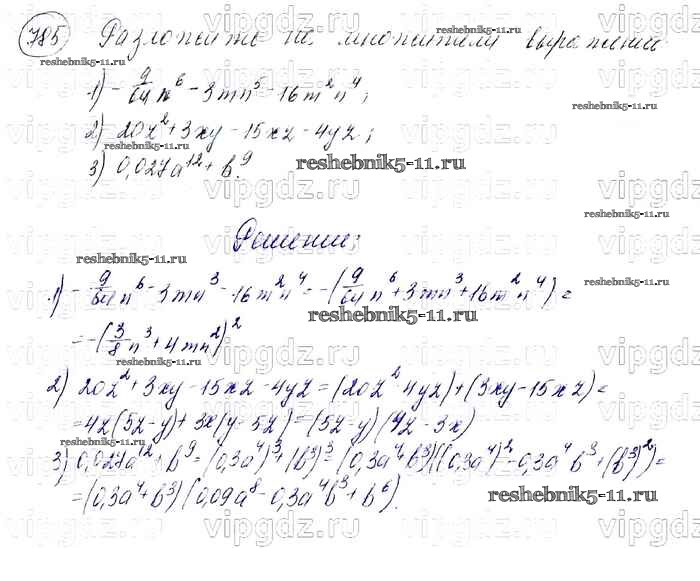 785 Разложить на множители выражение
1) - 9/64 n⁶ - 3mn⁵ - 16m²n⁴;
2) 20z² + 3xy - 15xz - 4yz;
3) 0,027a¹² + b⁹.
Решение:
1) - 9/64 n⁶ - 3mn³ - 16m²n⁴ = -(9/64 n⁶ + 3mn³ + 16m²n⁴) =
= -(3/8 n³ + 4mn²)²
2) 20z² + 3xy - 15xz - 4yz = (20z² 4yz) + (3xy - 15xz) =
= 4z(5z - y) + 3x(y - 5z) = (5z - y)(4z - 3x)
3) 0,027a¹² + b⁹ = (0,3a⁴)³ + (b³)³ = (0,3a⁴ + b³)((0,3a⁴)² - 0,3a⁴b³ + (b³)²) =
= (0,3a⁴ + b³)(0,09a⁸ - 0,3a⁴b³ + b⁶).
reshebnik5-11.ru
vipgdz.ru